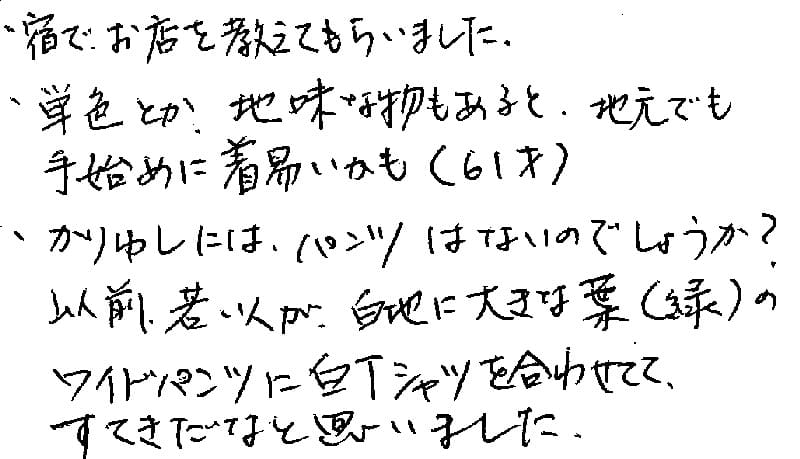 ・宿で、お店を教えてもらいました。
・単色とか、地味な物もあると、地元でも
手始めに着易いかも(61才)
・かりゆしには、パンツはないのでしょうか?
以前、若い人が、白地に大きな葉(緑)の
ワイドパンツに白Tシャツを合わせてて、
すてきだなと思いました。